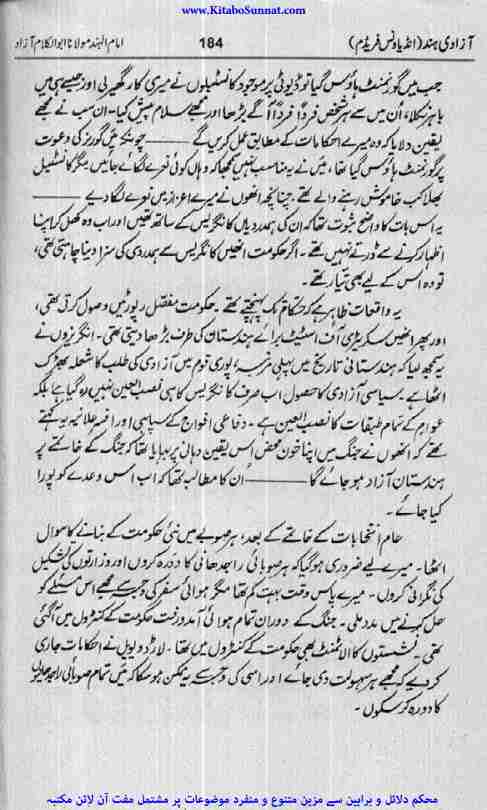 www.KitaboSunnat.com
آزادی ہند (انڈیا ونس فریڈم) 184 امام الہند مولانا ابوالکلام آزاد
جب میں گورنمنٹ ہاؤس گیا تو ڈیوٹی پر موجود کانسٹیبلوں نے میری کار گھیر لی اور جیسے ہی میں
باہر نکلا، اُن میں سے ہر شخص فرداً فرداً آگے بڑھا اور مجھے سلام پیش کیا۔ ان سب نے مجھے
یقین دلایا کہ وہ میرے احکامات کے مطابق عمل کریں گے ——— چونکہ میں گورنر کی دعوت
پر گورنمنٹ ہاؤس گیا تھا، میں نے یہ مناسب نہیں سمجھا کہ وہاں کوئی نعرے لگائے جائیں مگر کانسٹیبل
بھلا کب خاموش رہنے والے تھے، چنانچہ انھوں نے میرے اعزاز میں نعرے لگا دیے ———
یہ اس بات کا واضح ثبوت تھا کہ ان کی ہمدردیاں کانگریس کے ساتھ تھیں اور اب وہ کھل کر اپنا
اظہار کرنے سے ڈرتے نہیں تھے۔ اگر حکومت انھیں کانگریس سے ہمدردی کی سزا دینا چاہتی تھی،
تو وہ اس کے لیے بھی تیار تھے۔
یہ واقعات ظاہر ہے کہ حکام تک پہنچتے تھے۔ حکومت مفصل رپورٹیں وصول کرتی تھی،
اور پھر انھیں سکریٹری آف اسٹیٹ برائے ہندستان کی طرف بڑھا دیتی تھی۔ انگریزوں نے
یہ سمجھ لیا کہ ہندستانی تاریخ میں پہلی مرتبہ، پوری قوم میں آزادی کی طلب کا شعلہ بھڑک
اٹھا ہے۔ سیاسی آزادی کا حصول اب صرف کانگریس کا ہی نصب العین نہیں رہ گیا ہے بلکہ
عوام کے تمام طبقات کا نصب العین ہے۔ دفاعی افواج کے سپاہی اور افسر علانیہ یہ کہتے
تھے کہ انھوں نے جنگ میں اپنا خون محض اِس یقین دہانی پر بہایا تھا کہ جنگ کے خاتمے پر
ہندستان آزاد ہو جائے گا ——— ان کا مطالبہ تھا کہ اب اس وعدے کو پورا
کیا جائے۔
عام انتخابات کے خاتمے کے بعد، ہر صوبے میں نئی حکومت کے بنانے کا سوال
اٹھا۔ میرے لیے ضروری ہو گیا کہ ہر صوبائی راجدھانی کا دورہ کروں اور وزارتوں کی تشکیل
کی نگرانی کروں۔ میرے پاس وقت بہت کم تھا مگر ہوائی سفر کی وجہ سے مجھے اس مسئلے کو
حل کرنے میں مدد ملی۔ جنگ کے دوران تمام ہوائی آمد و رفت حکومت کے کنٹرول میں آگئی
تھی۔ نشستوں کا الاٹمنٹ بھی حکومت کے کنٹرول میں تھا۔ لارڈ ویویل نے احکامات جاری
کر دیے کہ مجھے ہر سہولت دی جائے اور اسی کی وجہ سے یہ ممکن ہو سکا کہ میں تمام صوبائی راجدھانیوں
کا دورہ کر سکوں۔
محکم دلائل و براہین سے مزین متنوع و منفرد موضوعات پر مشتمل مفت آن لائن مکتبہ